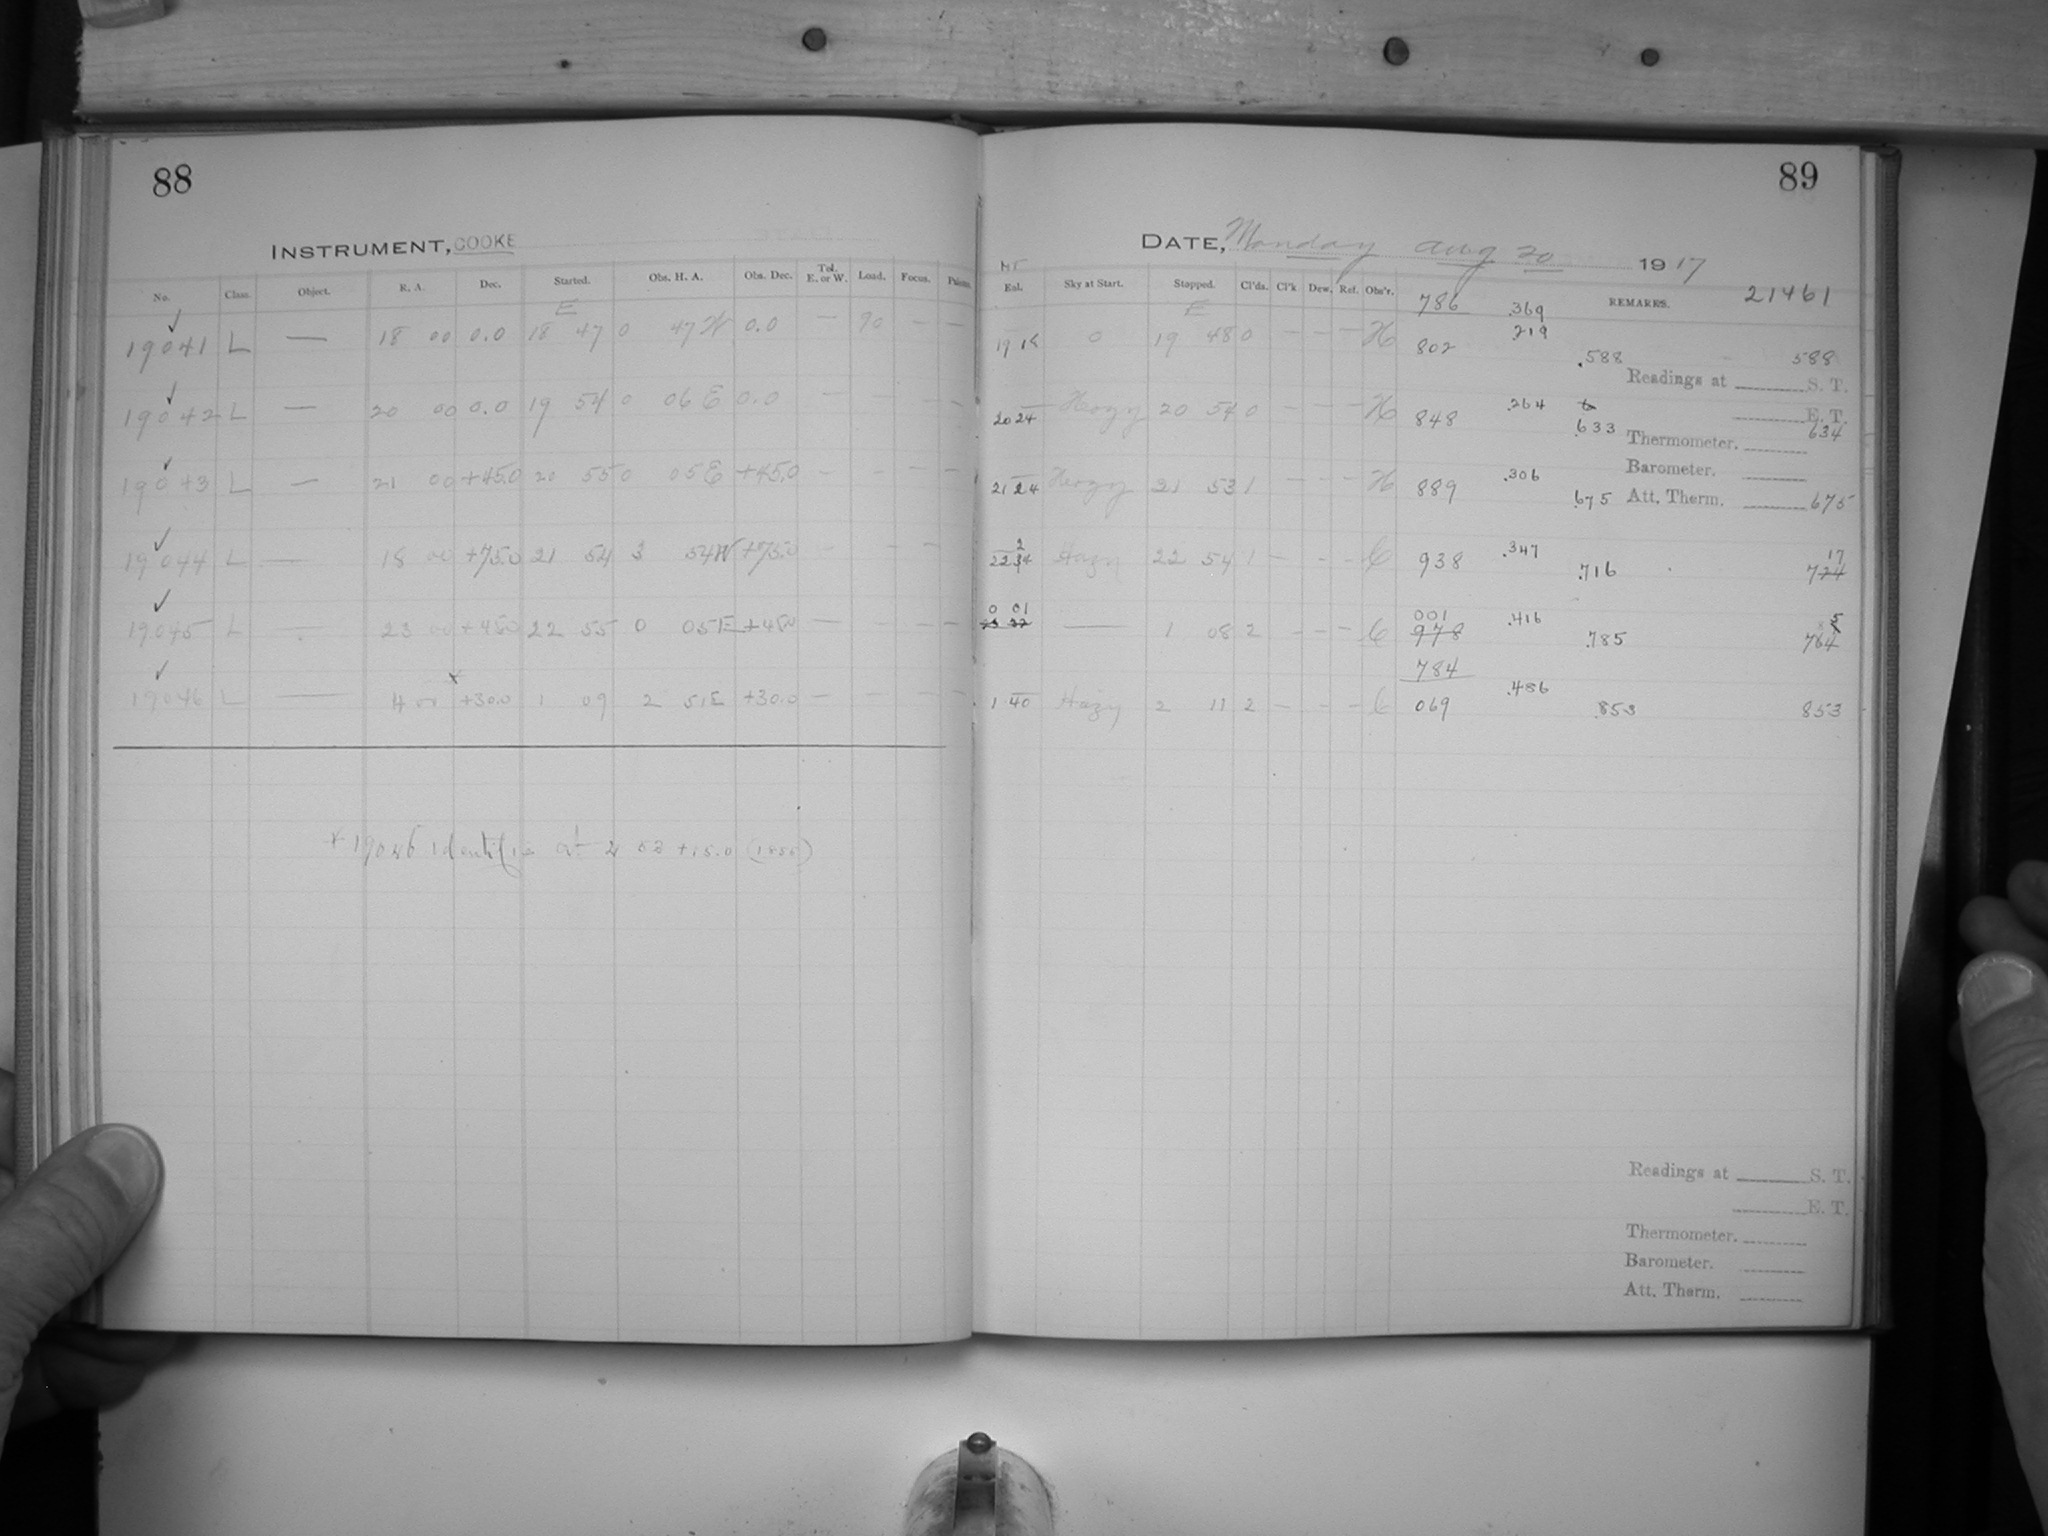 88
INSTRUMENT, COOKE
No. Class. Object. R. A. Dec. Started. Obs. H. A. Obs. Dec. Tel. E. or W. Load. Focus.
E
19041 L — 18 00 0.0 18 47 0 47 W 0.0 — 90 — —
19042 L — 20 00 0.0 19 54 0 06 E 0.0 — — — —
19043 L — 21 00 +45.0 20 55 0 05 E +45.0 — — — —
19044 L — 18 00 +75.0 21 54 3 54 W +75.0 — — —
19045 L 23 00 +45.0 22 55 0 05 E +45.0 — — — —
19046 L — 4 00 +30.0 1 09 2 51 E +30.0 — — — —
* 19046 identifie at 4 53 +15.0 (1855)
89
DATE, Monday Aug 20 1917
Sky at Start. Stopped. Cl'ds. Cl'k Dew. Ref. Obs'r. REMARKS.
E 786 .369 21461
0 19 48 0 — — — H 802 .219 .588 588
Readings at S. T.
20 24 Hazy 20 54 0 — — — H 848 .264 .633 634
E. T.
Thermometer.
Barometer.
21 24 Hazy 21 53 1 — — — H 889 .306 .675 675
Att. Therm.
Hazy 22 54 1 — — — C 938 .347 .716 17
0 01 — 1 08 2 — — — C 001 978 .416 .785
784
1 40 Hazy 2 11 2 — — — C 069 .486 .853 853
Readings at S. T.
E. T.
Thermometer.
Barometer.
Att. Therm.